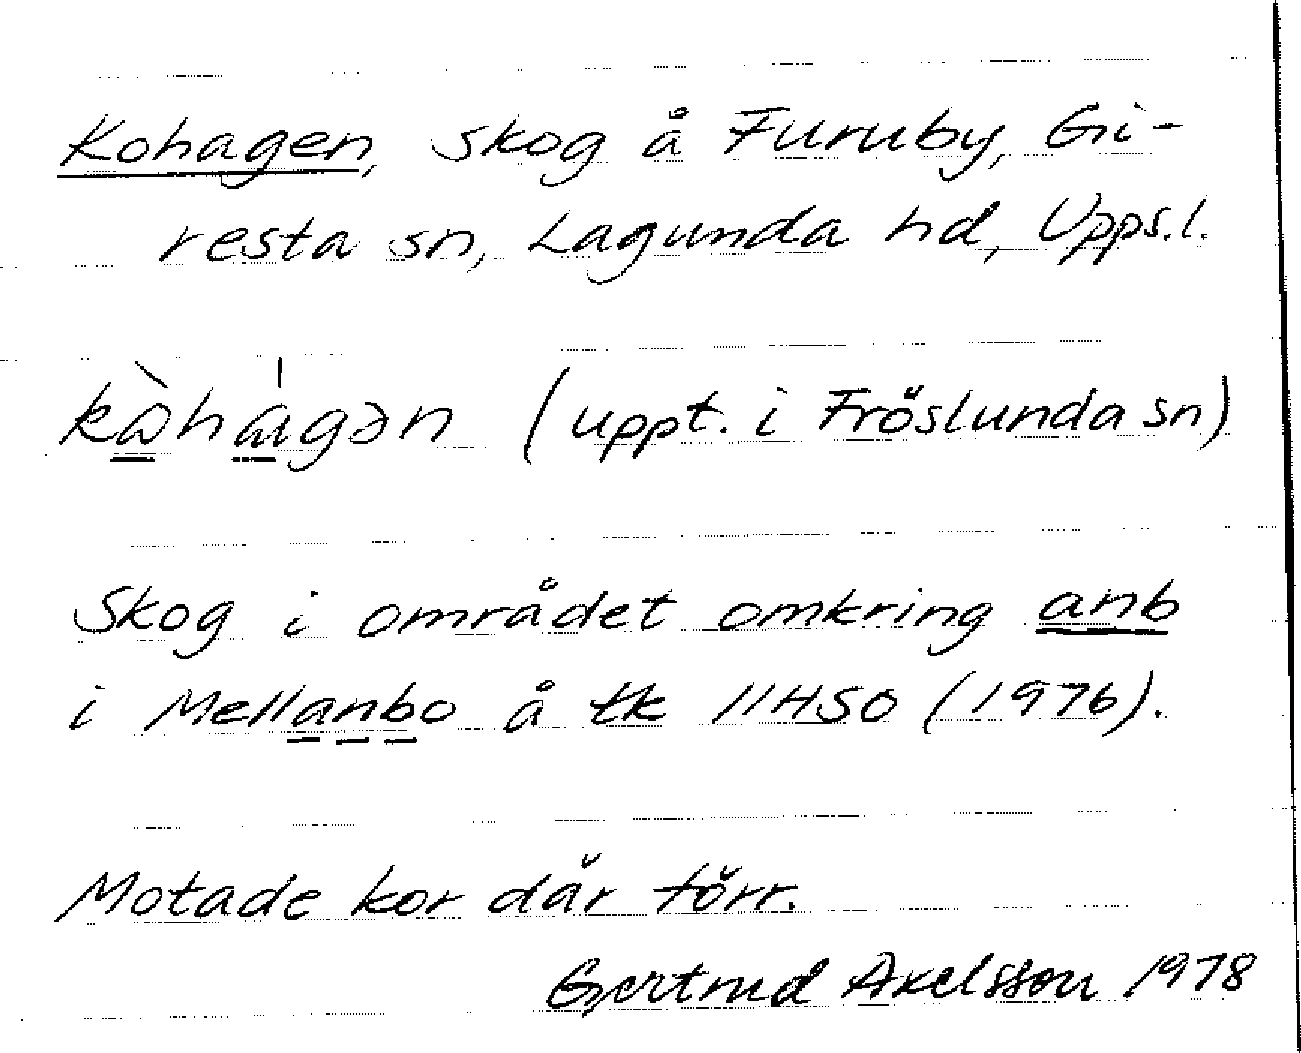 Kohagen, skog å Furuby, Gi-
resta sn, Lagunda hd, Upps.l.
kòhágən (uppt. i Fröslunda sn)
Skog i området omkring anb
i Mellanbo å tk 11H5O (1976).
Motade kor där förr.
Gertrud Axelsson 1978